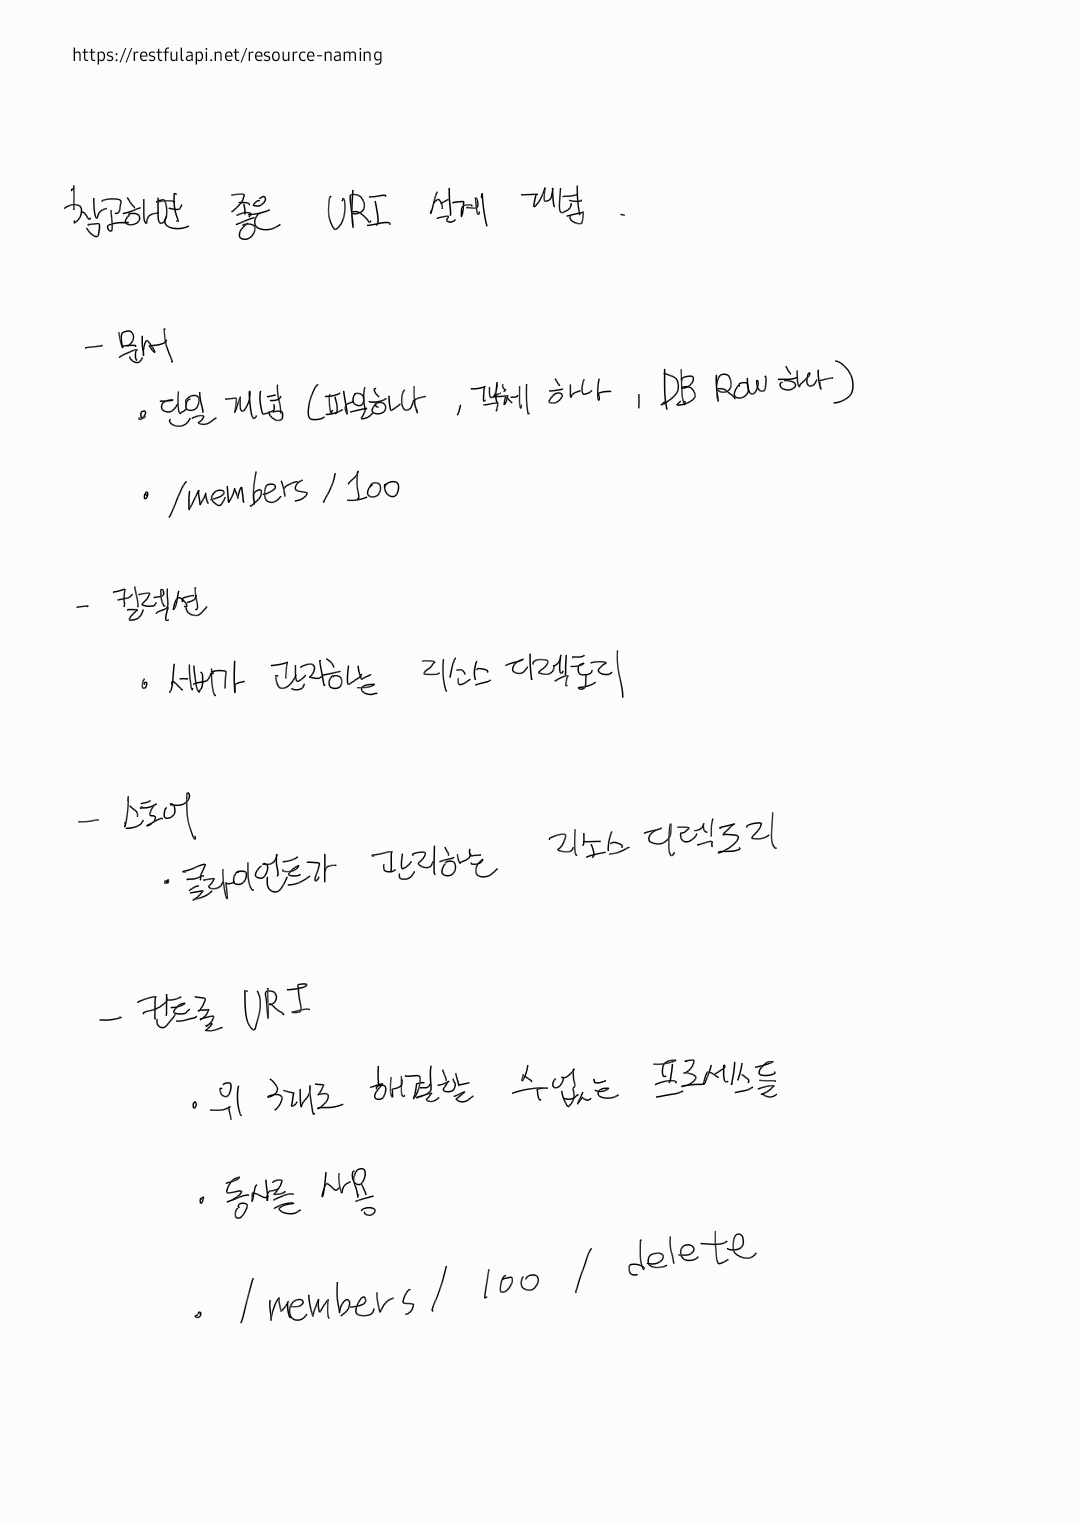 https://restfulapi.net/resource-naming
참고하면 좋은 URI 설계 개념.
- 문서
• 단일 개념 (파일하나, 객체 하나, DB Row 하나)
• /members/100
- 컬렉션
• 서버가 관리하는 리소스 디렉토리
- 스토어
• 클라이언트가 관리하는 리소스 디렉토리
- 컨트롤 URI
• 위 3개로 해결할 수 없는 프로세스들
• 동사를 사용
• /members/100/delete